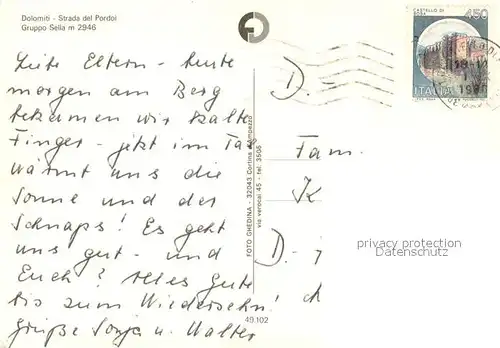 Dolomiti - Strada del Pordoi
Gruppo Sella m 2946
Liebe Eltern - heute
morgen am Berg
bekamen wir kalte
Finger - jetzt im Tal
wärmt uns die
Sonne und der
Schnaps! Es geht
uns gut - und
Euch? Alles Gute
bis zum Wiedersehn!
grüße Sonja u. Walter
FOTO GHEDINA - 32043 Cortina d'Ampezzo
via verocai 45 - tel. 3505
49.102
CASTELLO DI
450
ITALIA
D.-
Fam.
K
D.-
privacy protection
Datenschutz